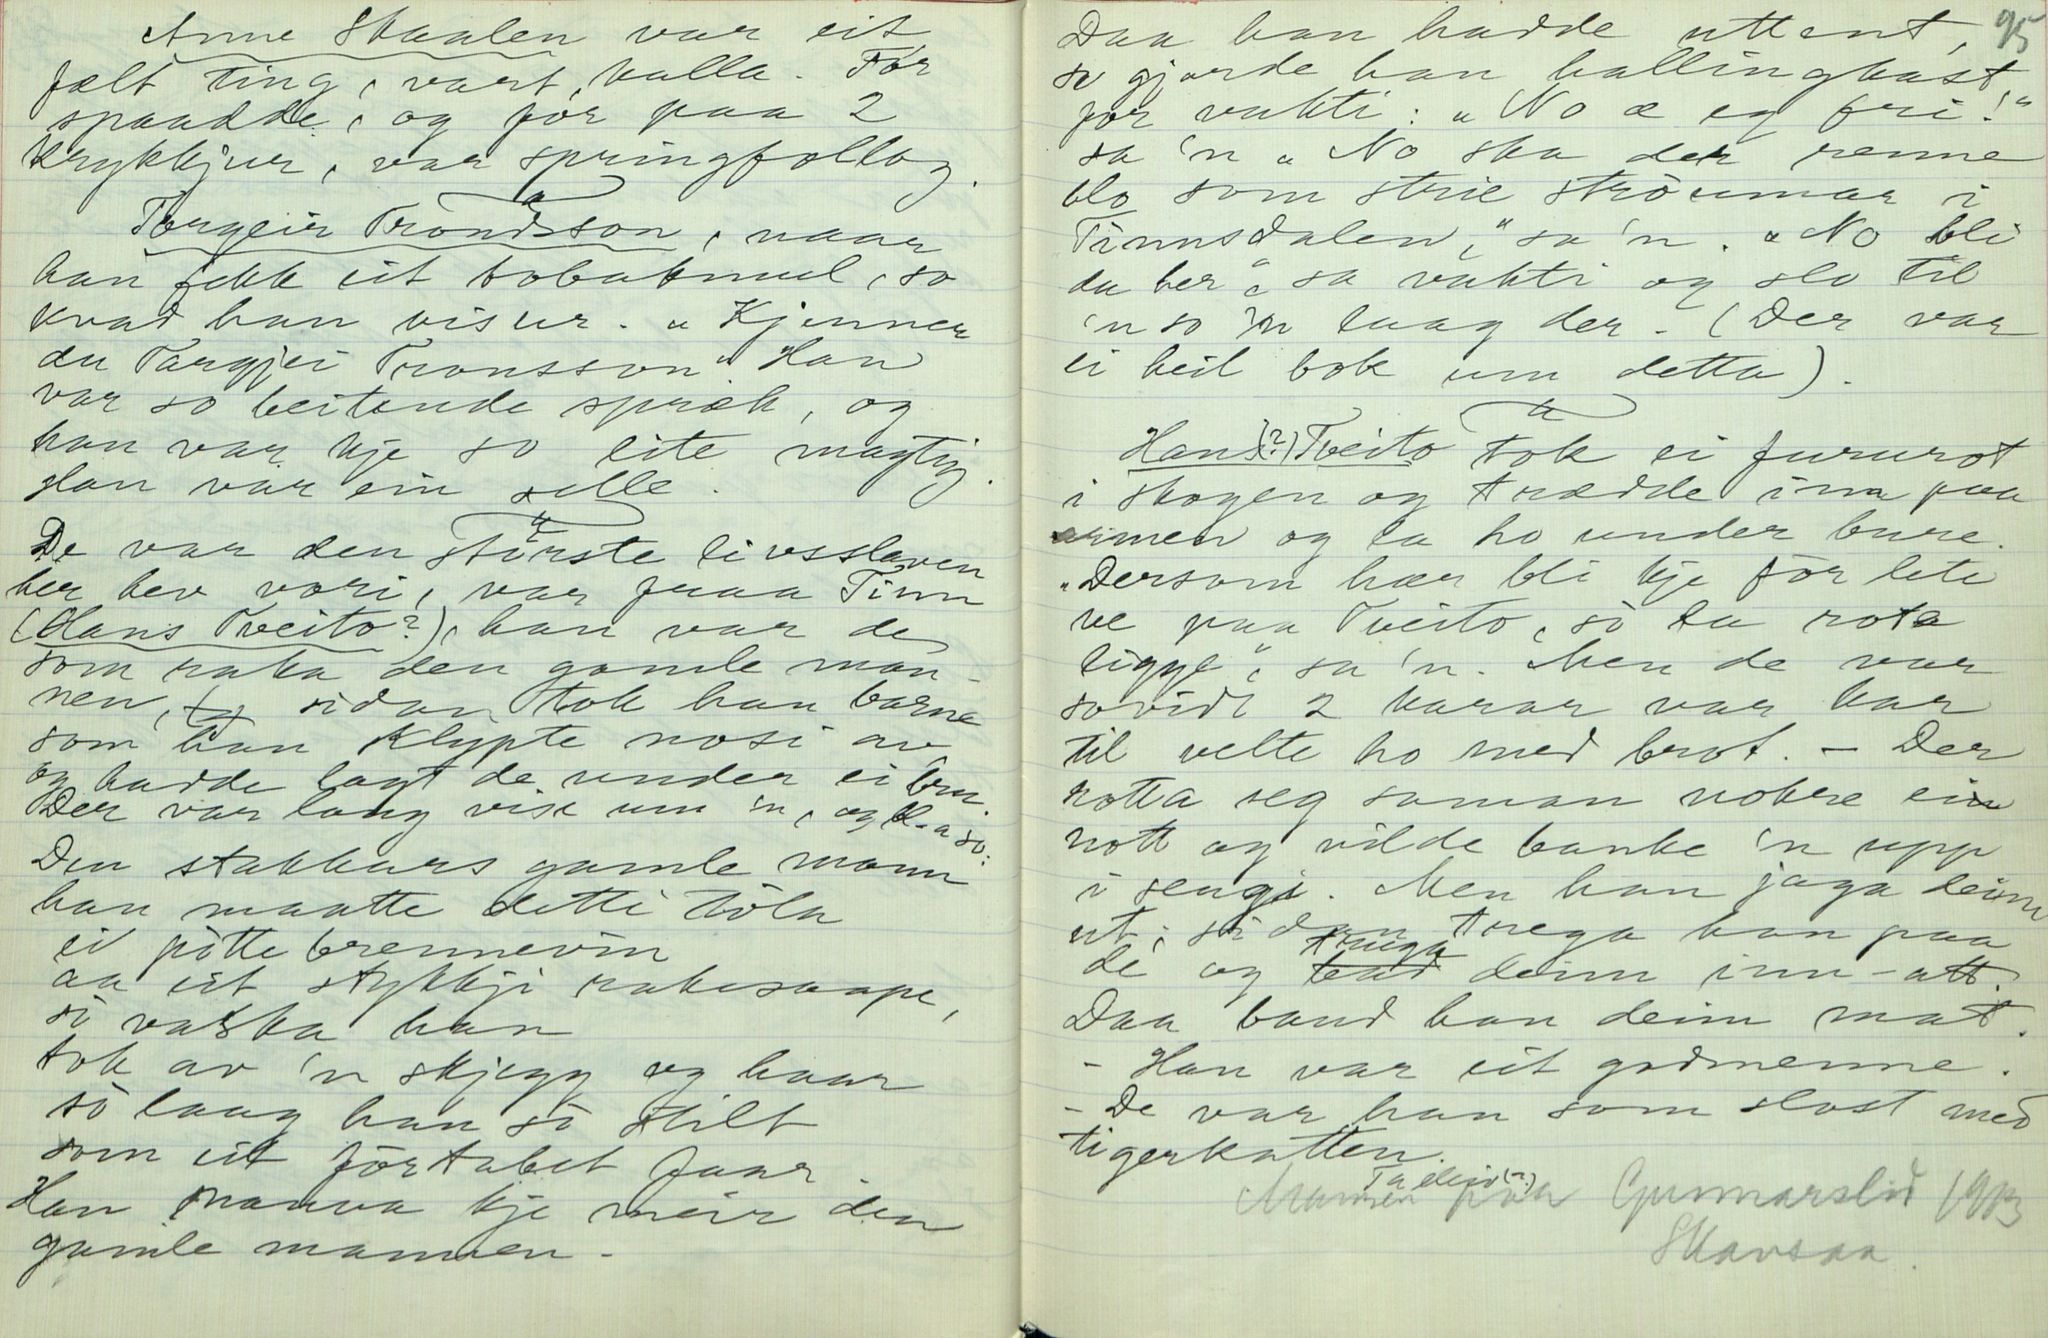 Anne Skaalen var eit
fælt ting, vart kalla. For
spaadde, og for paa 2
krykkjur, var springfollog.
Torgeir Trondsson, naar
han fekk eit tobakmul, so
kvad han visur. "Kjenner
du Targjei Tronsson" Han
var so beitande spræk, og
han var kje so lite magtig.
Han var ein selle.
De var den største livsslaven
her hev vori, var fraa Tinn
(Hans Tveito?), han var de
som raka den gamle man-
nen, og sidan tok han barne
som han klypte nosi av
og hadde lagt de under ei bru.
Der var lang vise um 'n, og so:
Den stakkars gamle mann
han maatte detti tola
ei potte brennevin
aa eit stykkji rakesaape,
so vaska han
tok av 'n skjegg og haar
so laag han so stilt
som eit fortabet faar.
Han kje meir den
gamle mannen.
95
Daa han hadde uttent,
so gjorde han hallingkast
for vakti: "No æ eg fri!"
sa 'n "No ska der renne
blo som strie straumar i
Tinnsdalen," sa 'n. "No bli
du her", sa vakti og slo til
'n so 'n laag der. (Der var
ei heil bok um detta).
Hans(?) Tveito tok ei fururot
i skogen og trædde inn paa
armen og la ho under bure.
"Dersom her bli kje for lite
ve paa Tveito, so la rota
liggje", sa 'n. Men de var
sovidt 2 karar var kar
til velte ho med brot. - Der
rotta seg saman nokre ein
nott og vilde banke 'n upp
i sengi. Men han jaga deim
ut; sidan trega han paa
truga
de og bad deim inn-att.
Daa baud han deim mat.
- Han var eit godmenne.
- De var han som slost med
tigerkatten.
Mannen paa Gunnarsli 1913
Skavsaa.